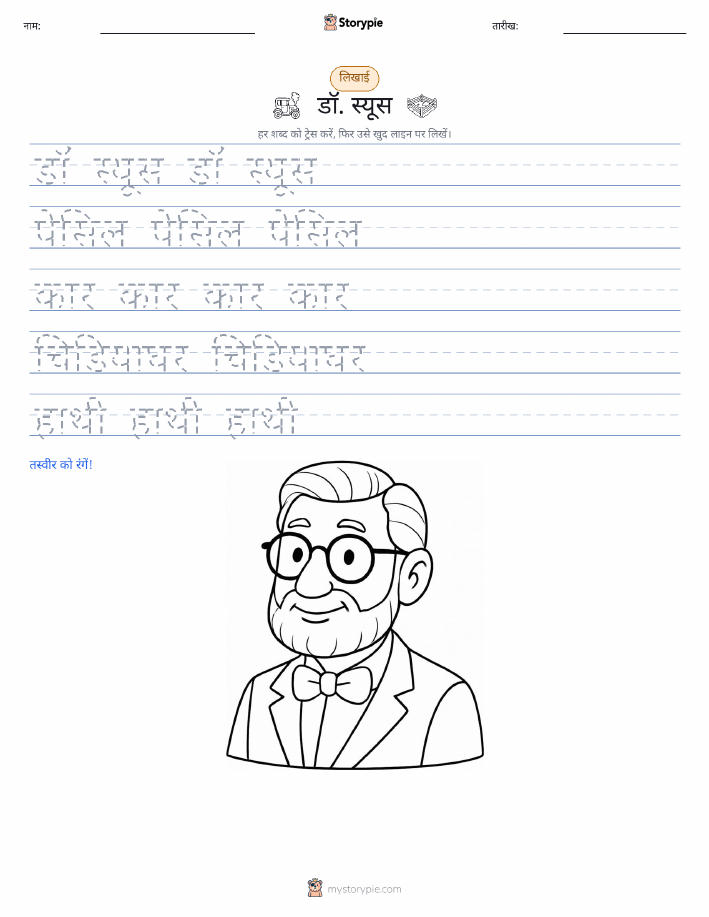 नाम:
Storypie
तारीख:
लिखाई
डॉ. स्यूस
हर शब्द को ट्रेस करें, फिर उसे खुद लाइन पर लिखें।
डॉ स्यूस डॉ स्यूस
पेंसिल पेंसिल पेंसिल
कार कार कार कार
चिडियाघर चिडियाघर
हाथी हाथी हाथी
तस्वीर को रंगें!
mystorypie.com